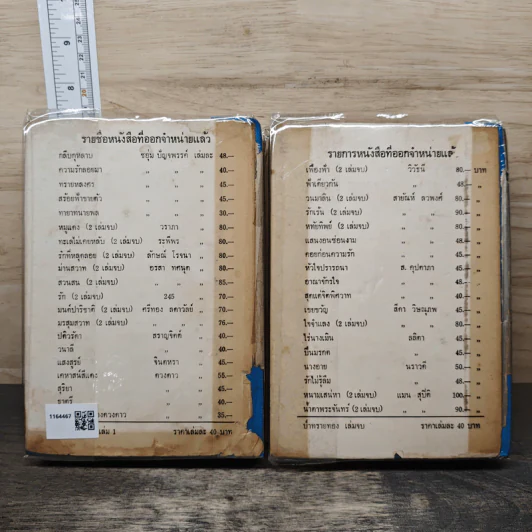 รายชื่อหนังสือที่ออกจำหน่ายแล้ว
กลีบกุหลาบ ชอุ่ม ปัญจพรรค์ เล่มละ 48.—
ความรักลอยมา " " " 40.—
ทรายหลงศร " " " 45.—
สร้อยฟ้าขายตัว " " " 45.—
ทายาทนายพล " " " 30.—
หมูแดง (2 เล่มจบ) วราภา " 80.—
ทะเลไม่เคยหลับ (2 เล่มจบ) ระพีพร " 80.—
รักที่หลุดลอย (2 เล่มจบ) ลักษณ์ โรจนา " 80.—
ม่านสวาท (2 เล่มจบ) อรสา " 80.—
สวนสน (2 เล่มจบ) " " 85.—
รัก (2 เล่มจบ) 245 " 70.—
มนต์ปาริชาติ (2 เล่มจบ) ศรีทอง ลดาวัลย์ " 70.—
มรสุมสวาท (2 เล่มจบ) " " 70.—
ปติวรัดา สราญจิตต์ " 40.—
วนาลี " " 40.—
แสงสูรย์ จินตหรา " 45.—
เคหาสน์สีแดง ดวงดาว " 55.—
สุริยา " " 40.—
ยาตรี " " 40.—
งดวงดาว " " 35.—
1164467
เล่ม 1 ราคาเล่มละ 40 บาท
รายการหนังสือที่ออกจำหน่ายแล้
เฟื่องฟ้า (2 เล่มจบ) วิวัธน์ 80.— บาท
ฟ้าเดียวกัน " 48.— "
วนมาลิน (2 เล่มจบ) สายัณห์ 80.— "
รักเร้น (2 เล่มจบ) " " 90.— "
หทัยทิพย์ (2 เล่มจบ) " " 80.— "
แสนงอนซ่อนงาม " " 48.— "
คอยก่อนความรัก " " 45.— "
หัวใจปรารถนา ส. คุปตาภา 45.— "
อาณาจักรใจ " " 48.— "
สุดแต่จิตพิศวาท " " 40.— "
เชยขวัญ สีดา 40.— "
ใจจำแลง (2 เล่มจบ) " " 80.— "
ไร่นางเมิน ลลิตา 45.— "
ปิ่นมรกต " 40.— "
นางอาย นราวดี 50.— "
รักไม่รู้ลืม " 48.— "
หนามเสน่หา (2 เล่มจบ) แมน สุปิติ 100.— "
น้ำตาพระจันทร์ (2 เล่มจบ) " " 90.— "
บ้าทรายทอง เล่มจบ ราคาเล่มละ 40 บาท